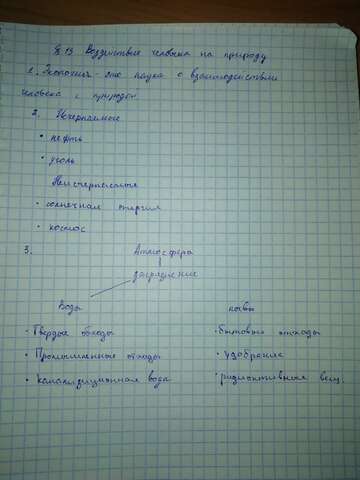 § 13 Воздействие человека на природу
1. Экология - это наука о взаимодействии
человека с природой
2. Исчерпаемые
• нефть
• уголь
Неисчерпаемые
• солнечная энергия
• космос
3. Атмосфера
загрязнение
Воды почвы
• Твёрдые отходы • бытовые отходы
• Промышленные отходы • удобрение
• Канализационная вода • радиоактивные вещ.